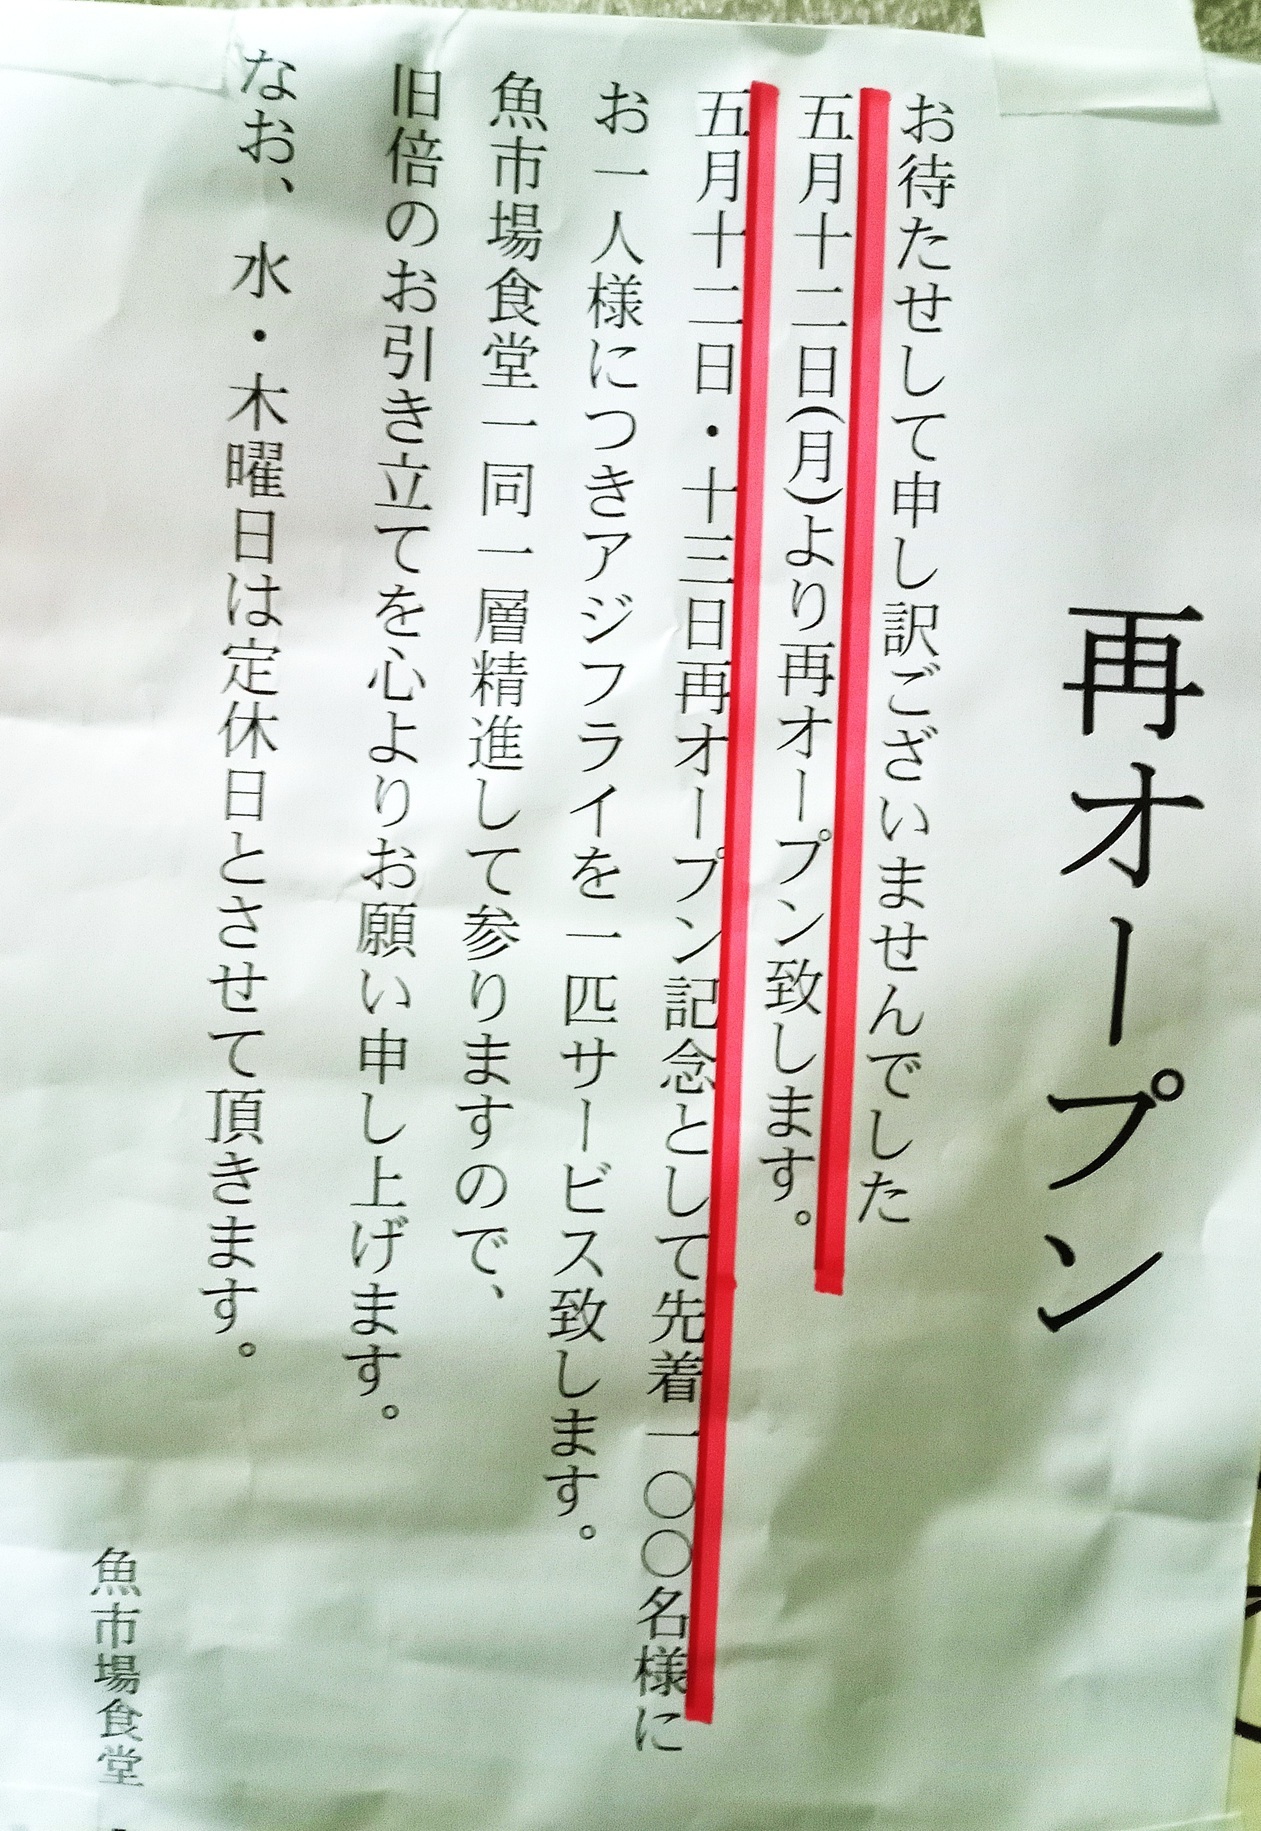 再オープン
お待たせして申し訳ございませんでした
五月十二日(月)より再オープン致します。
五月十二日・十三日再オープン記念として先着一〇〇名様に
お一人様につきアジフライを一匹サービス致します。
魚市場食堂一同一層精進して参りますので、
旧倍のお引き立てを心よりお願い申し上げます。
なお、水・木曜日は定休日とさせて頂きます。
魚市場食堂